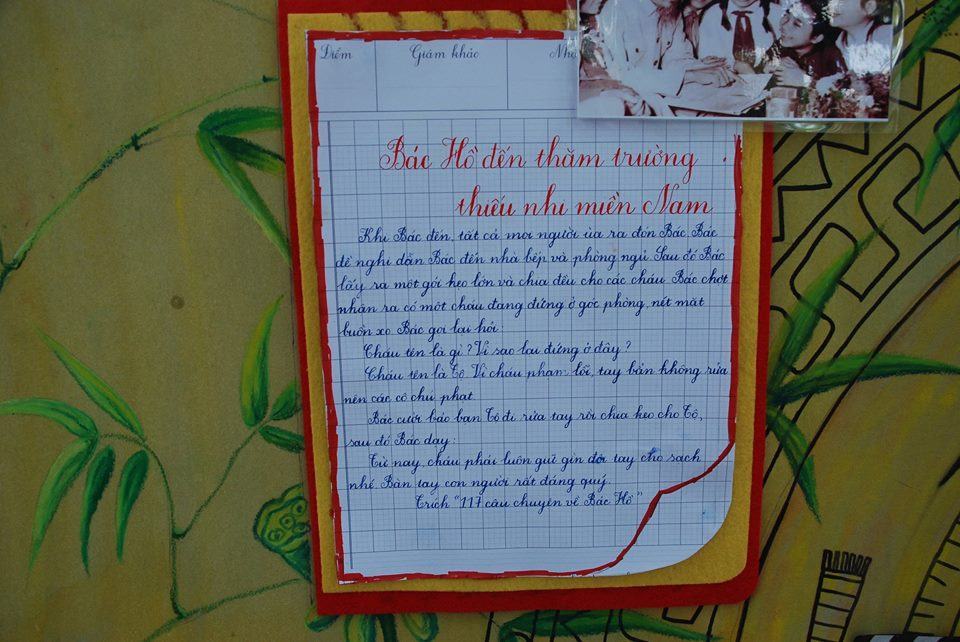 Điểm Giám khảo Nhậ
Bác Hồ đến thăm trường
thiếu nhi miền Nam
Khi Bác đến, tất cả mọi người ùa ra đón Bác. Bác
đề nghị dẫn Bác đến nhà bếp và phòng ngủ. Sau đó Bác
lấy ra một gói kẹo lớn và chia đều cho các cháu. Bác chợt
nhận ra có một cháu đang đứng ở góc phòng, nét mặt
buồn xo. Bác gọi lại hỏi:
Cháu tên là gì? Vì sao lại đứng ở đây?
Cháu tên là Tộ. Vì cháu phạm lỗi, tay bẩn không rửa
nên các cô chú phạt.
Bác cười bảo bạn Tộ đi rửa tay rồi chia kẹo cho Tộ,
sau đó Bác dạy:
Từ nay, cháu phải luôn giữ gìn đôi tay cho sạch
nhé. Bàn tay con người rất đáng quý.
Trích "117 câu chuyện về Bác Hồ"